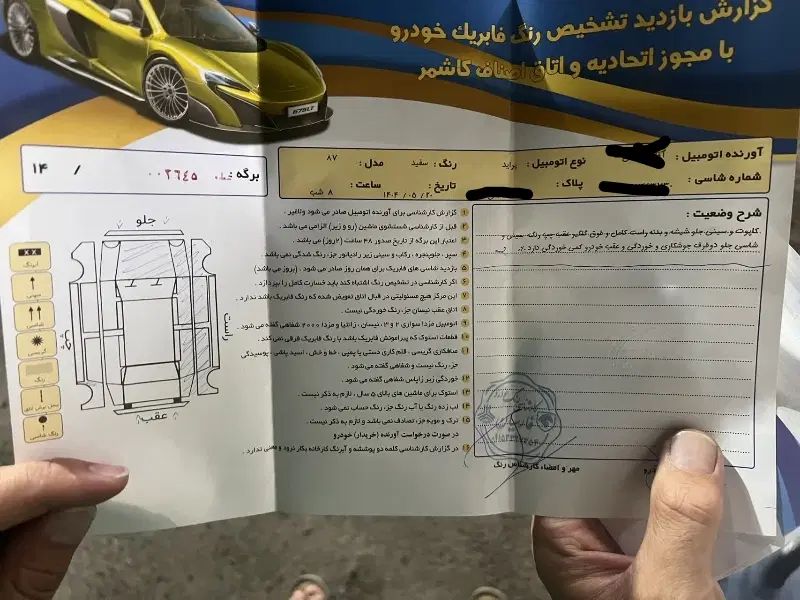 گزارش بازدید تشخیص رنگ فابریک خودرو
با مجوز اتحادیه و اتاق اصناف کاشمر
675LT
آورنده اتومبیل :
نوع اتومبیل : پراید
رنگ : سفید
مدل : ۸۷
شماره شاسی :
پلاک :
تاریخ : ۱۴۰۴ / ۰۵ / ۲۰
ساعت : ۸ شب
برگه خط: ۰۰۲۶۴۵ / ۱۴
شرح وضعیت :
کاپوت و سینی جلو شیشه و بدنه راست کامل و فوق گلگیر عقب چپ رنگه .سینی و
شاسی جلو دوطرف جوشکاری و خوردگی و عقب خودرو کمی خوردگی دارد.
۱ گزارش کارشناسی برای آورنده اتومبیل صادر می شود ولاغیر .
۲ قبل از کارشناسی شستشوی ماشین (رو و زیر) الزامی می باشد .
۳ اعتبار این برگه از تاریخ صدور ۴۸ ساعت (۲روز) می باشد .
۴ سپر ، جلوپنجره ، رکاب و سینی زیر رادیاتور جز، رنگ شدگی نمی باشد .
۵ بازدید شاسی های فابریک برای همان روز صادر می شود . (بروز می باشد)
۶ اگر کارشناسی در تشخیص رنگ اشتباه کند باید خسارت کامل را بپردازد .
۷ این مرکز هیچ مسئولیتی در قبال اتاق تعویض شده که رنگ فابریک باشد ندارد .
۸ اتاق عقب نیسان جز، رنگ خوردگی نیست .
۹ اتومبیل مزدا سواری ۲ و ۳، نیسان ، زانتیا و مزدا ۲۰۰۰ شفاهی گفته می شود .
۱۰ قطعات استوک که پیرامونش فابریک باشد با رنگ فابریک فرقی نمی کند .
۱۱ صافکاری گریسی ، قلم کاری دستی یا پمپی ، خط و خش ، اسید پاشی ، پوسیدگی
جز، رنگ نیست و شفاهی گفته می شود .
۱۲ خوردگی زیر زاپاس شفاهی گفته می شود .
۱۳ استوک برای ماشین های بالای ۵ سال ، لازم به ذکر نیست .
۱۴ لب زده رنگ یا آب رنگ جز، رنگ حساب نمی شود .
۱۵ ترک و مویه جز، تصادف نمی باشد و لازم به ذکر نیست .
در صورت درخواست آورنده (خریدار) خودرو
۱۶ در گزارش کارشناسی کلمه دو پوششه و آبرنگ کارخانه بکار نرود و معنی ندارد .
مهر و امضاء کارشناس رنگ
جلو
راست
چپ
عقب
XX
آبرنگ
گریسی
رنگ
رنگ شاسی